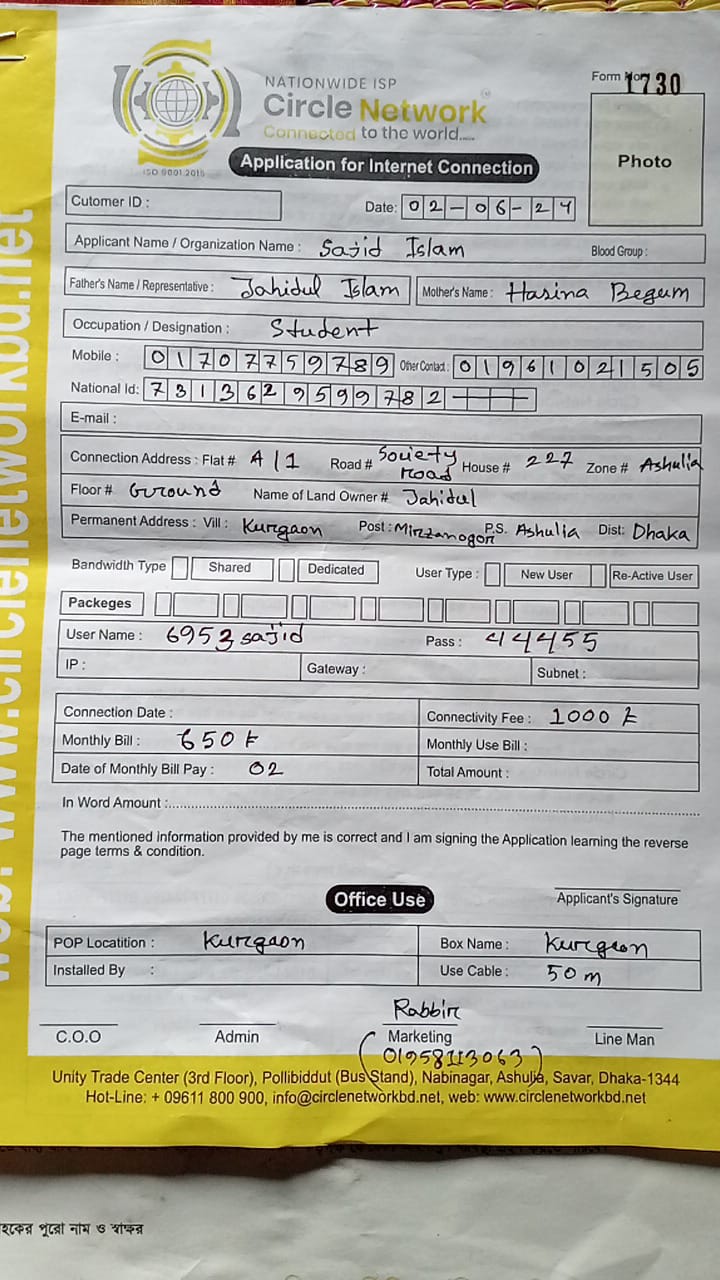 NATIONWIDE ISP
Circle Network
Connected to the world.....
ISO 9001:2015
Form No 1730
Photo
Application for Internet Connection
Cutomer ID :
Date: 02-06-24
Applicant Name / Organization Name : Sajid Islam Blood Group :
Father's Name / Representative : Jahidul Islam Mother's Name : Hasina Begum
Occupation / Designation : Student
Mobile : 01707759789 Other Contact : 01961021505
National Id: 7313629599782
E-mail :
Connection Address : Flat # A/1 Road # Society Road House # 227 Zone # Ashulia
Floor # Ground Name of Land Owner # Jahidul
Permanent Address : Vill : Kurgaon Post : Mirzanogor P.S. Ashulia Dist: Dhaka
Bandwidth Type Shared Dedicated User Type : New User Re-Active User
Packeges
User Name : 6953sajid Pass : 44455
IP : Gateway : Subnet :
Connection Date : Connectivity Fee : 1000 ৳
Monthly Bill : 650 ৳ Monthly Use Bill :
Date of Monthly Bill Pay : 02 Total Amount :
In Word Amount :
The mentioned information provided by me is correct and I am signing the Application learning the reverse
page terms & condition.
Applicant's Signature
Office Use
POP Locatition : Kurgaon Box Name : Kurgaon
Installed By : Use Cable : 50 m
Rabbir
C.O.O Admin Marketing Line Man
(01958113063)
Unity Trade Center (3rd Floor), Pollibiddut (Bus Stand), Nabinagar, Ashulia, Savar, Dhaka-1344
Hot-Line: + 09611 800 900, info@circlenetworkbd.net, web: www.circlenetworkbd.net
web: www.circlenetworkbd.net
হকের পুরো নাম ও স্বাক্ষর